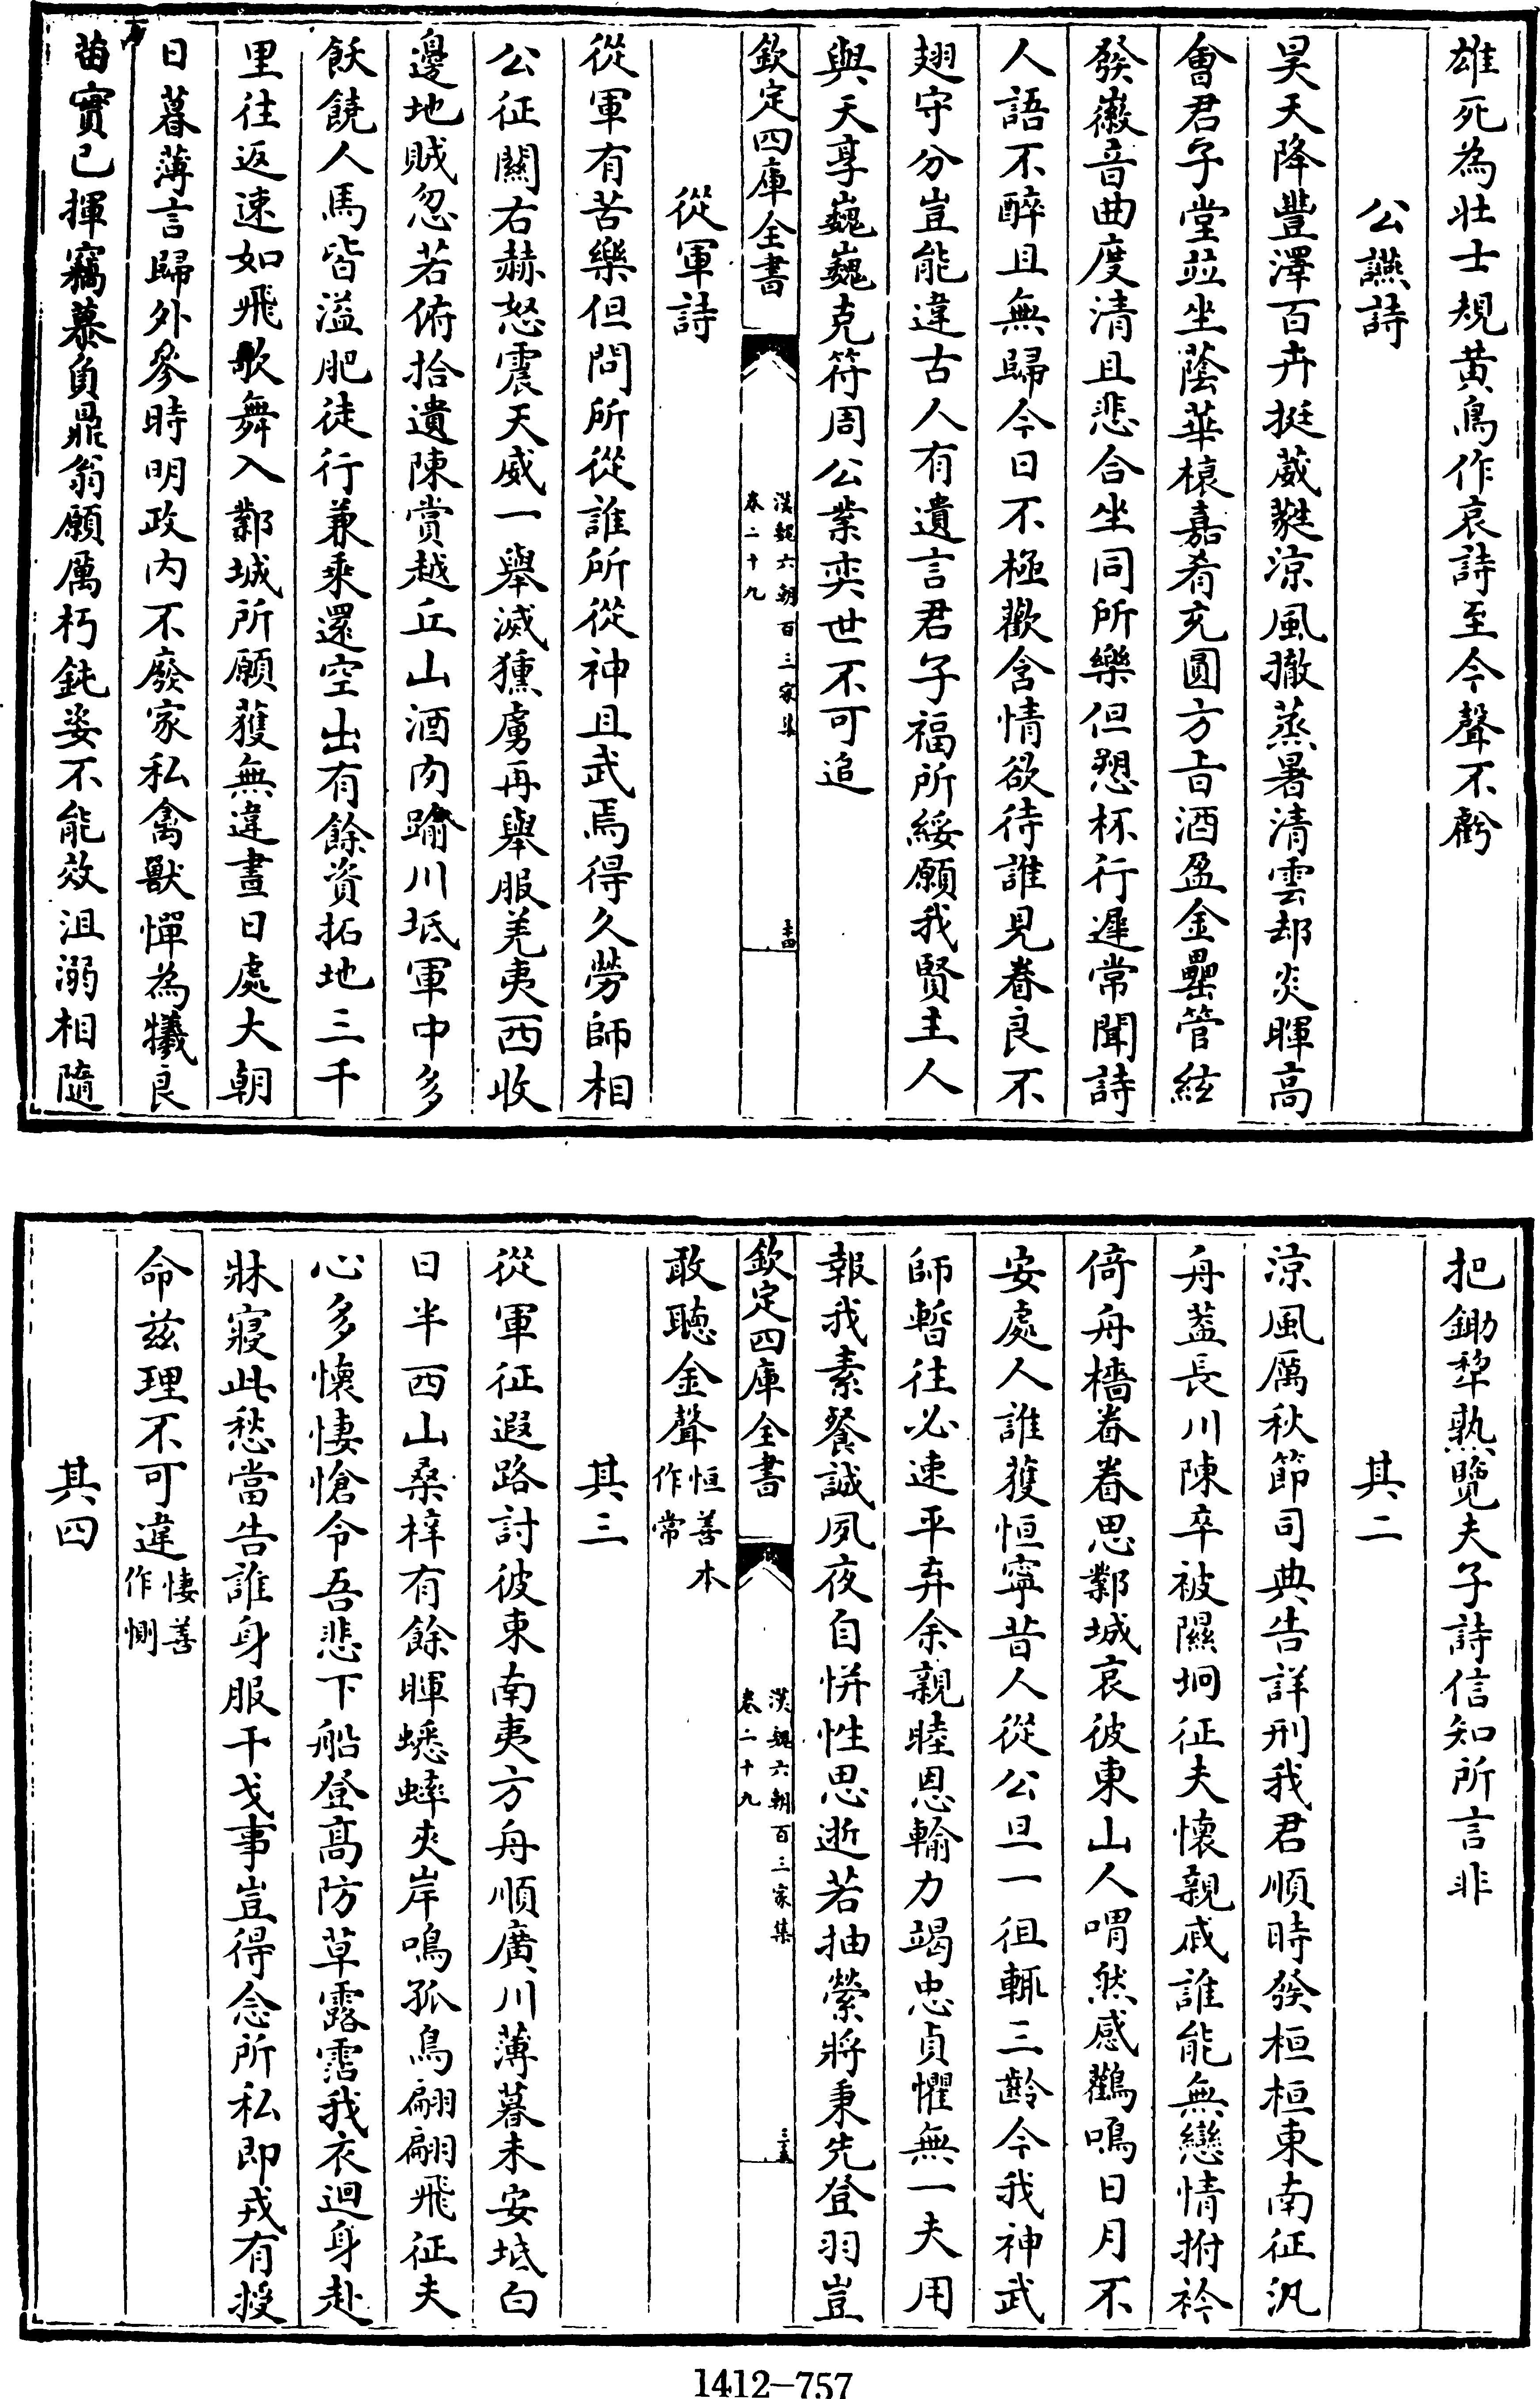 雄死為壯士規黄鳥作哀詩至今聲不虧
公讌詩
昊天降豐澤百卉挺葳蕤涼風撤蒸暑清雲却炎暉高
會君子堂並坐蔭華榱嘉肴充圓方旨酒盈金罍管絃
發徽音曲度清且悲合坐同所樂但愬杯行遲常聞詩
人語不醉且無歸今日不極歡含情欲待誰見眷良不
翅守分豈能違古人有遺言君子福所綏願我賢主人
與天享巍巍克符周公業奕世不可追
欽定四庫全書
漢魏六朝百三家集
卷二十九
三十四
從軍詩
從軍有苦樂但問所從誰所從神且武焉得久勞師相
公征關右赫怒震天威一舉滅獯虜再舉服羌夷西收
邊地賊忽若俯拾遺陳賞越丘山酒肉踰川坻軍中多
飫饒人馬皆溢肥徒行兼乘還空出有餘資拓地三千
里往返速如飛歌舞入鄴城所願獲無違晝日處大朝
日暮薄言歸外參時明政内不廢家私禽獸憚為犧良
苗實已揮竊慕負鼎翁願厲朽鈍姿不能效沮溺相隨
把鋤犂熟覽夫子詩信知所言非
其二
涼風厲秋節司典告詳刑我君順時發桓桓東南征汎
舟蓋長川陳卒被隰坰征夫懷親戚誰能無戀情拊衿
倚舟檣眷眷思鄴城哀彼東山人喟然感鸛鳴日月不
安處人誰獲恒寧昔人從公旦一徂輒三齡今我神武
師暫往必速平弃余親睦恩輸力竭忠貞懼無一夫用
報我素餐誠夙夜自恲性思逝若抽縈將秉先登羽豈
欽定四庫全書
漢魏六朝百三家集
卷二十九
三十五
敢聽金聲恒善本作常
其三
從軍征遐路討彼東南夷方舟順廣川薄暮未安坻白
日半西山桑梓有餘暉蟋蟀夾岸鳴孤鳥翩翩飛征夫
心多懷悽愴令吾悲下船登髙防草露霑我衣迴身赴
牀寢此愁當告誰身服干戈事豈得念所私即戎有授
命兹理不可違悽善作惻
其四
1412-757